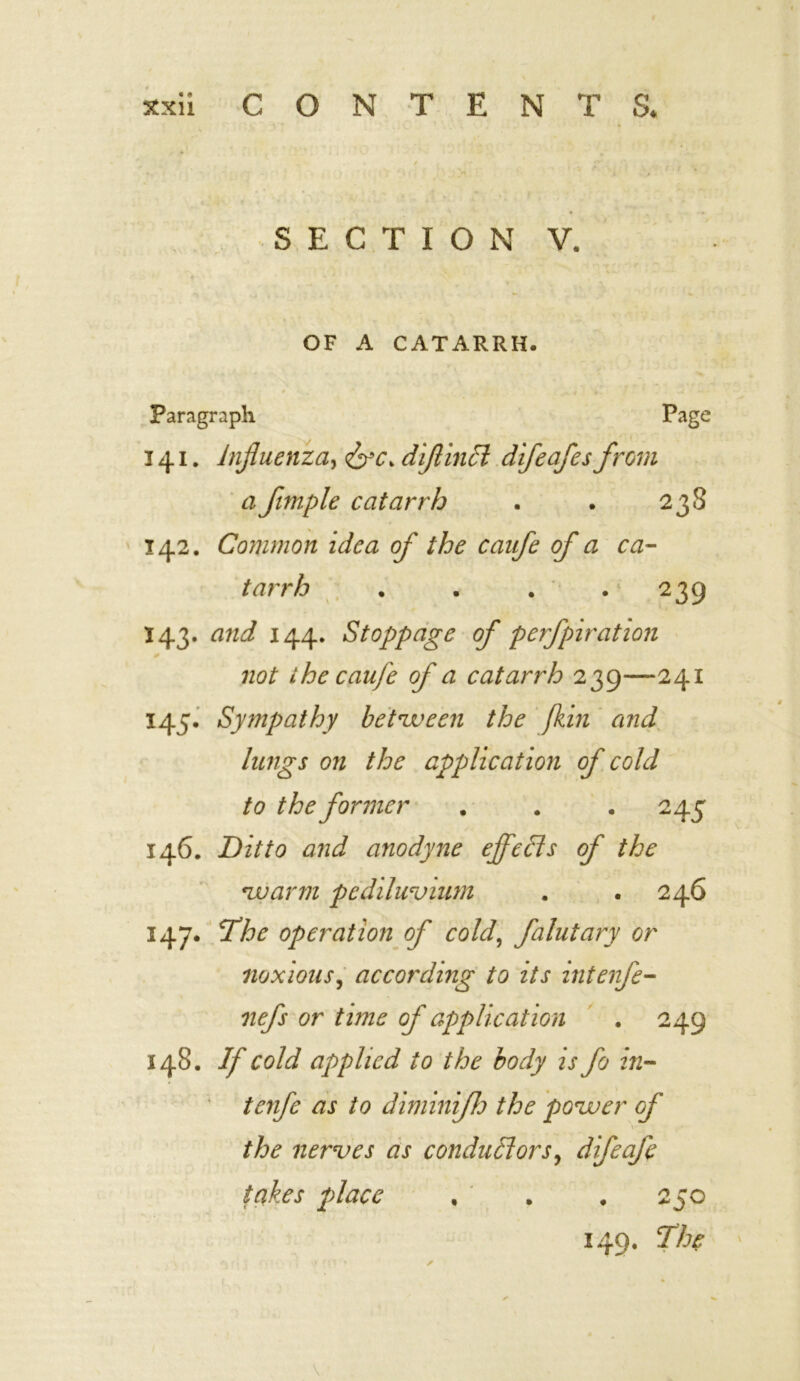 xxii CONTENTS.
SECTION V.
OF A CATARRH.
Paragraph Page
141. Influenza, &c. diſtinct diſeaſes from
a ſimple catarrh . . 238
142. Common idea of the cauſe of a ca-
tarrh . . . . 239
143. and 144. Stoppage of perſpiration
not the cauſe of a catarrh 239—241
145. Sympathy between the ſkin and
lungs on the application of cold
to the former . . . 245
146. Ditto and anodyne effects of the
warm pediluvium . . 246
147. The operation of cold, ſalutary or
noxious, according to its intenſe-
neſs or time of application . 249
148. If cold applied to the body is ſo in-
tenſe as to diminiſh the power of
the nerves as conductors, diſeaſe
takes place . . . 250
149. The